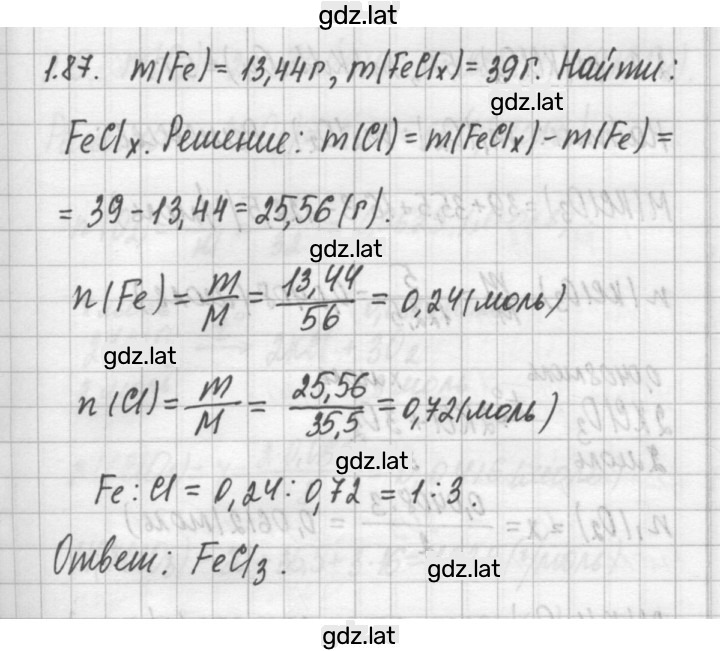 gdz.lat
1.87. m(Fe) = 13,44г, m(FeClₓ) = 39г. Найти:
gdz.lat
FeClₓ. Решение: m(Cl) = m(FeClₓ) - m(Fe) =
= 39 - 13,44 = 25,56 (г).
gdz.lat
n(Fe) = m/M = 13,44/56 = 0,24 (моль)
gdz.lat
n(Cl) = m/M = 25,56/35,5 = 0,72 (моль)
gdz.lat
Fe : Cl = 0,24 : 0,72 = 1 : 3.
Ответ: FeCl₃.
gdz.lat
gdz.lat